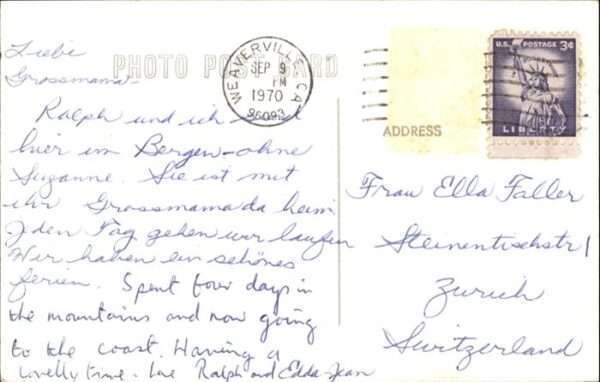 Liebe
Grossmama-
PHOTO POST CARD
WEAVERVILLE, CA
SEP 9
PM
1970
96093
U.S. POSTAGE 3¢
LIBERTY
ADDRESS
Ralph und ich sind
hier im Bergen-ohne
Suzanne. Sie ist mit
ihr Grossmama da heim
Jeden Tag gehen wir laufen
Wir haben ein schönes
ferien. Spent four days in
the mountains and now going
to the coast. Having a
lovelly time - love Ralph and Edda-Jean
Frau Ella Faller
Steinentischstr 1
Zurich
Switzerland